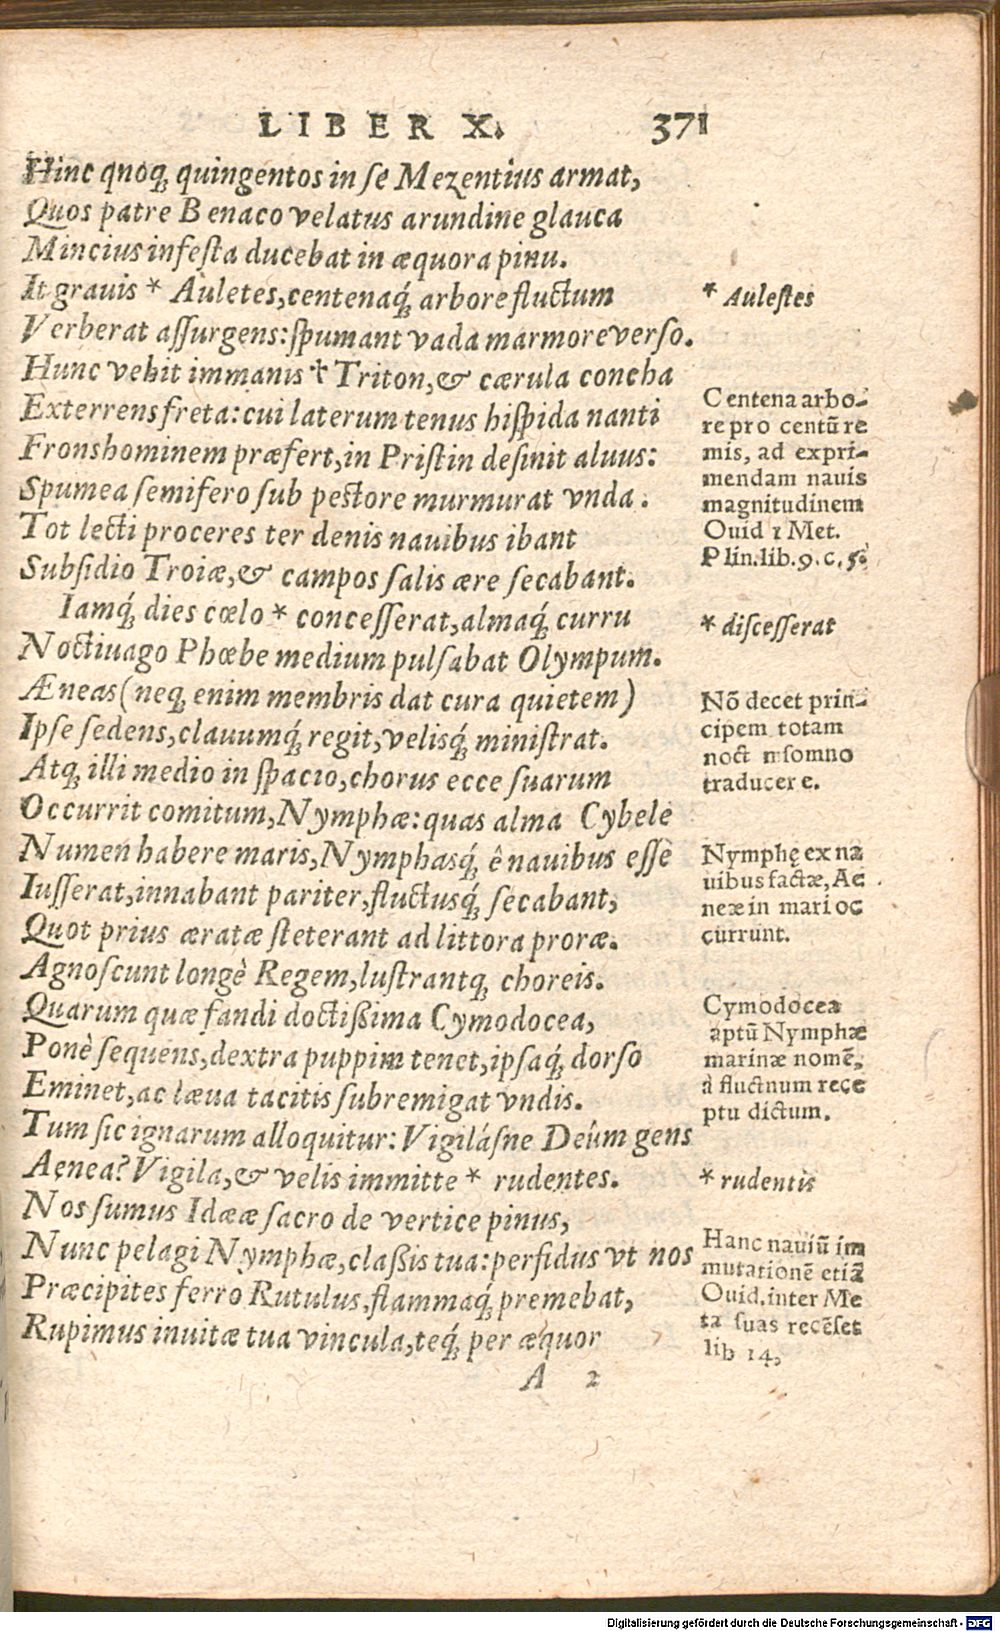 LIBER X. 371
Hinc qnoq́; quingentos in se Mezentius armat,
Quos patre Benaco velatus arundine glauca
Mincius infesta ducebat in æquora pinu.
It grauis * Auletes, centenaq́; arbore fluctum
Verberat assurgens: spumant vada marmore verso.
Hunc vehit immanis * Triton, & cærula concha
Exterrens freta: cui laterum tenus hispida nanti
Frons hominem præfert, in Pristin desinit aluus:
Spumea semifero sub pectore murmurat vnda.
Tot lecti proceres ter denis nauibus ibant
Subsidio Troiæ, & campos salis ære secabant.
Iamq́; dies cœlo * concesserat, almaq́; curru
Noctiuago Phœbe medium pulsabat Olympum.
Æneas (neq; enim membris dat cura quietem)
Ipse sedens, clauumq́; regit, velisq́; ministrat.
Atq; illi medio in spacio, chorus ecce suarum
Occurrit comitum, Nymphæ: quas alma Cybele
Numen habere maris, Nymphasq́; ê nauibus esse
Iusserat, innabant pariter, fluctusq́; secabant,
Quot prius æratæ steterant ad littora proræ.
Agnoscunt longè Regem, lustrantq; choreis.
Quarum quæ fandi doctißima Cymodocea,
Ponè sequens, dextra puppim tenet, ipsaq́; dorso
Eminet, ac læua tacitis subremigat vndis.
Tum sic ignarum alloquitur: Vigilásne Deûm gens
Aenea? Vigila, & velis immitte * rudentes.
Nos sumus Idææ sacro de vertice pinus,
Nunc pelagi Nymphæ, claßis tua: perfidus vt nos
Præcipites ferro Rutulus, flammaq́; premebat,
Rupimus inuitæ tua vincula, teq́; per æquor
A 2
* Aulestes
Centena arbo-
re pro centũ re
mis, ad expri-
mendam nauis
magnitudinem
Ouid 1 Met.
Plin. lib. 9. c. 5.
* discesserat
Nõ decet prin-
cipem totam
noct somno
traducere.
Nymphę ex na
uibus factæ, Ae
neæ in mari oc
currunt.
Cymodocea
aptũ Nymphæ
marinæ nomẽ,
à fluctnum rece
ptu dictum.
* rudentis
Hanc nauiũ im
mutationẽ etiã
Ouid. inter Me
ta suas recẽset
lib 14,
Digitalisierung gefördert durch die Deutsche Forschungsgemeinschaft - DFG